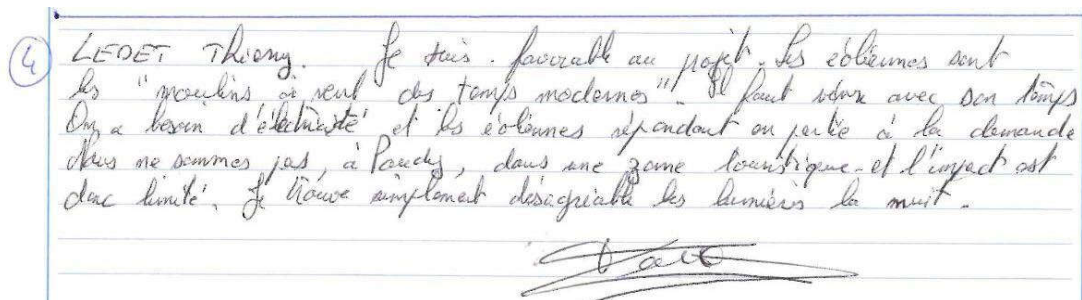 4 LEDET Thierry. Je suis favorable au projet. Les éoliennes sont
les "moulins à vent des temps modernes". Il faut vivre avec son temps
On a besoin d'électricité et les éoliennes répondent en partie à la demande
Nous ne sommes pas, à Paudy, dans une zone touristique et l'impact est
donc limité. Je trouve simplement désagréable les lumières la nuit.